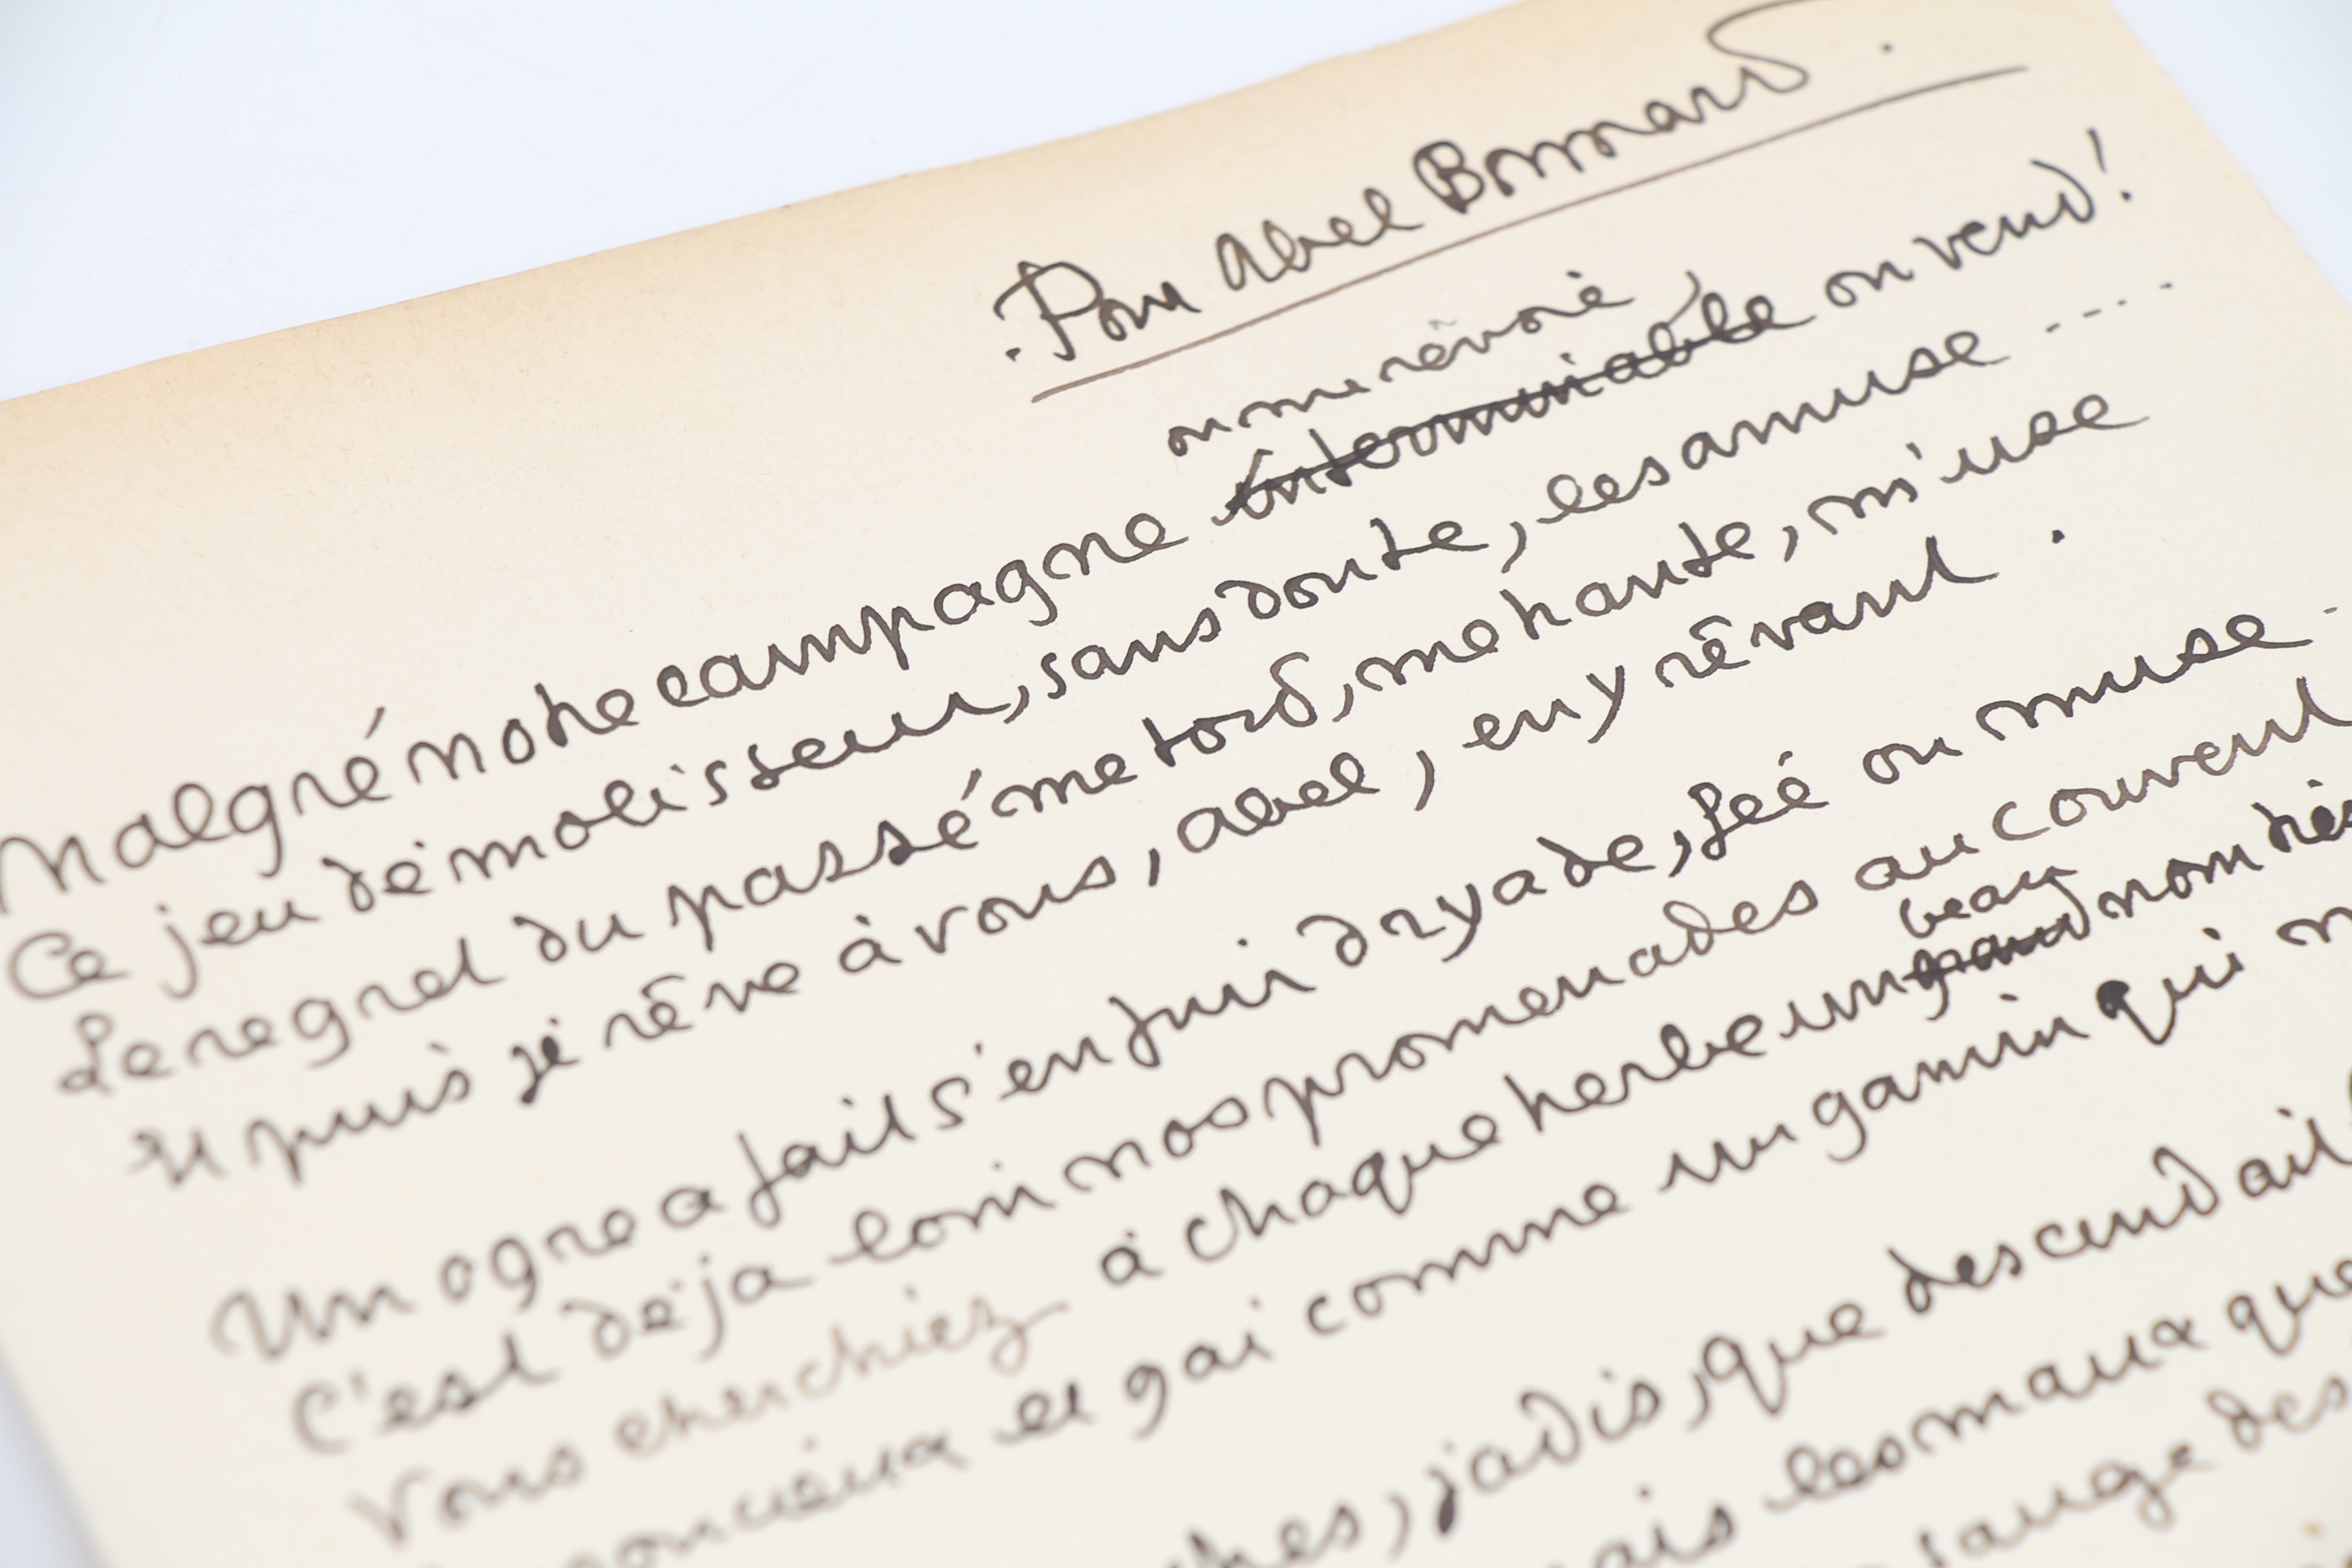 Pour Abel Bonnard.
on me rêvoie,
Malgré notre campagne interminable on vend!
Ce jeu démolisseur, sans doute, les amuse ....
Le regret du passé me tord, me hante, m'use
Et puis je rêve à vous, Abel, en y rêvant.
Un ogre a fait s'enfuir dryade, feé ou muse.
C'est déja loin nos promenades au couvent
beau
Vous cherchiez à chaque herbe un grand nom
et gai comme un gamin qui
jadis, que descendait
les maux que
sauge des